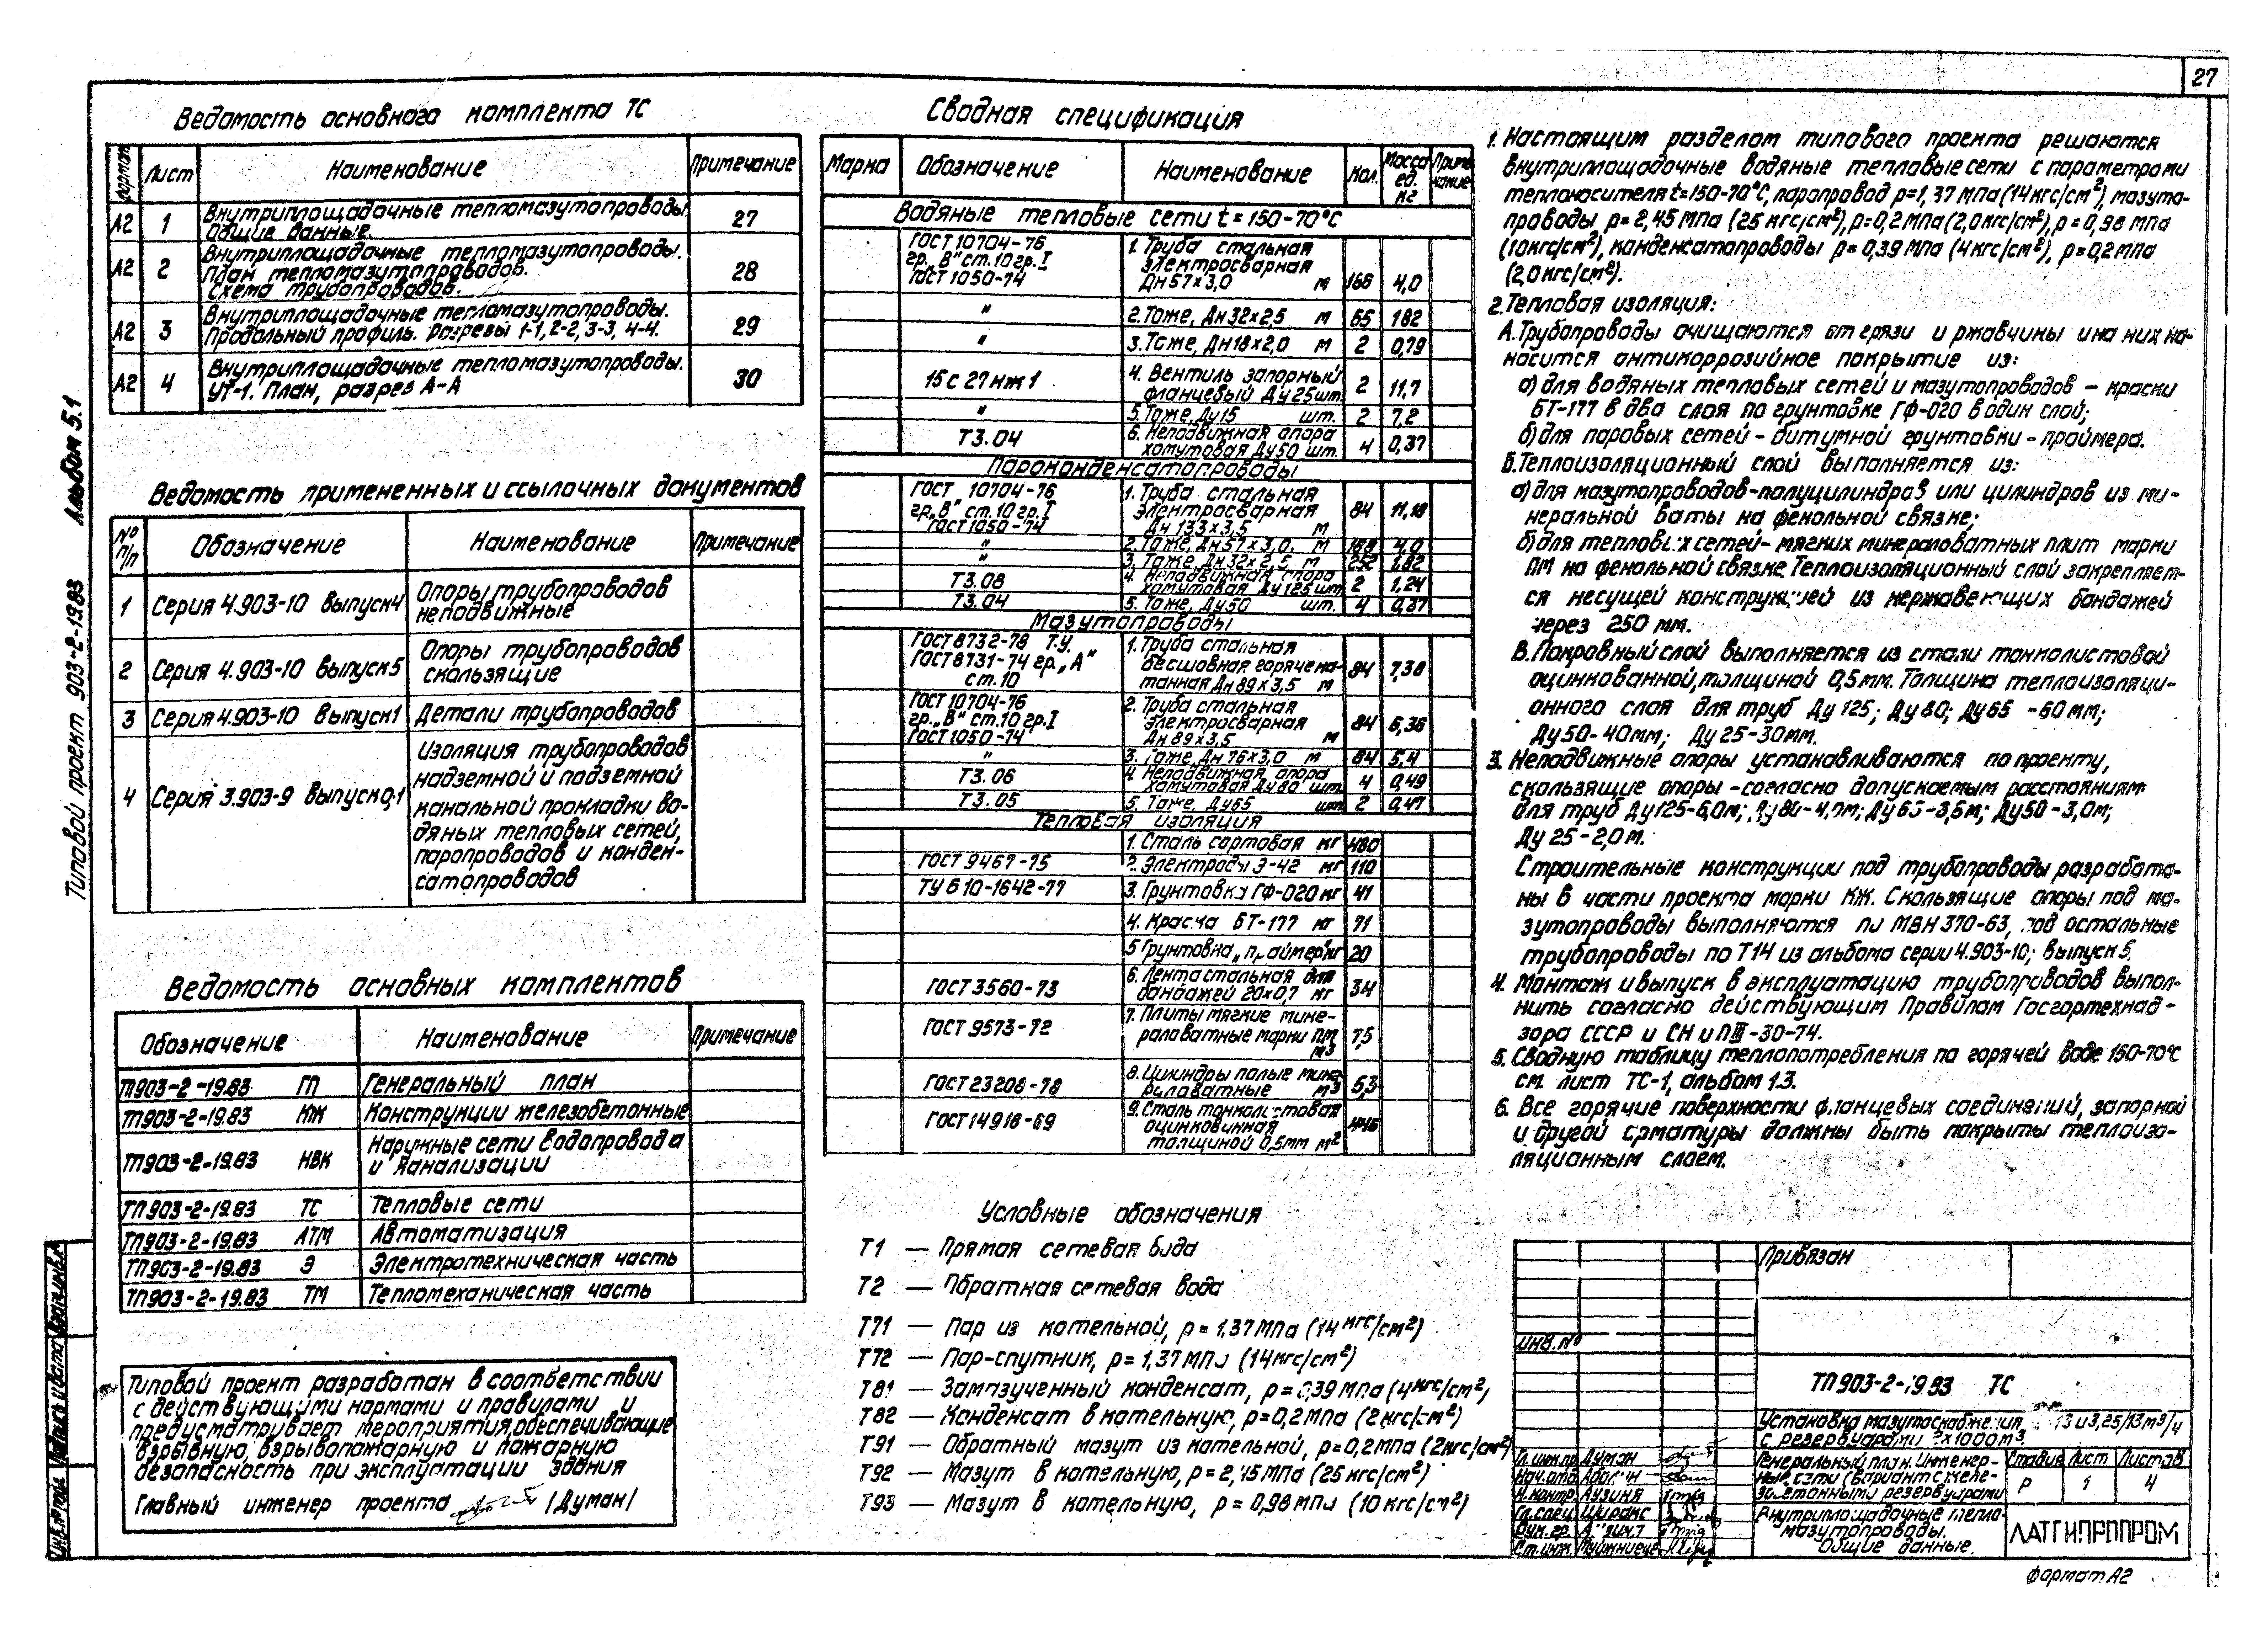 27
Типовой проект 903-2-19.83 Альбом 5.1
Ведомость основного комплекта ТС
Формат Лист Наименование Примечание
А2 1 Внутриплощадочные тепломазутопроводы. Общие данные. 27
А2 2 Внутриплощадочные тепломазутопроводы. План тепломазутопроводов. Схема трубопроводов. 28
А2 3 Внутриплощадочные тепломазутопроводы. Продольный профиль. Разрезы 1-1, 2-2, 3-3, 4-4. 29
А2 4 Внутриплощадочные тепломазутопроводы. УТ-1. План, разрез А-А 30
Ведомость примененных и ссылочных документов
№ п/п Обозначение Наименование Примечание
1 Серия 4.903-10 выпуск 4 Опоры трубопроводов неподвижные
2 Серия 4.903-10 выпуск 5 Опоры трубопроводов скользящие
3 Серия 4.903-10 выпуск 1 Детали трубопроводов
4 Серия 3.903-9 выпуск 0,1 Изоляция трубопроводов
надземной и подземной
канальной прокладки во-
дяных тепловых сетей,
паропроводов и конден-
сатопроводов
Ведомость основных комплектов
Обозначение Наименование Примечание
ТП903-2-19.83 ГП Генеральный план
ТП903-2-19.83 КЖ Конструкции железобетонные
ТП903-2-19.83 НВК Наружные сети водопровода и канализации
ТП903-2-19.83 ТС Тепловые сети
ТП903-2-19.83 АТМ Автоматизация
ТП903-2-19.83 Э Электротехническая часть
ТП903-2-19.83 ТМ Тепломеханическая часть
Типовой проект разработан в соответствии
с действующими нормами и правилами и
предусматривает мероприятия, обеспечивающие
взрывную, взрывопожарную и пожарную
безопасность при эксплуатации здания
Главный инженер проекта /Думан/
Сводная спецификация
Марка Обозначение Наименование Кол. Масса ед. кг Примечание
Водяные тепловые сети t=150-70°С
ГОСТ 10704-76 гр. „В" ст.10 гр.I ГОСТ 1050-74 1. Труба стальная электросварная Дн 57×3,0 м 168 4,0
" 2. Тоже, Дн 32×2,5 м 65 1,82
" 3. Тоже, Дн 18×2,0 м 2 0,79
15с 27нж1 4. Вентиль запорный фланцевый Ду 25 шт. 2 11,7
" 5. Тоже, Ду 15 шт. 2 7,2
Т3.04 6. Неподвижная опора хомутовая Ду 50 шт. 4 0,37
Пароконденсатопроводы
ГОСТ 10704-76 гр. „В" ст.10 гр.I ГОСТ 1050-74 1. Труба стальная электросварная Дн 133×3,5 м 84 11,18
" 2. Тоже, Дн 57×3,0, м 168 4,0
" 3. Тоже, Дн 32×2,5 м 252 1,82
Т3.08 4. Неподвижная опора хомутовая Ду 125 шт 2 1,24
Т3.04 5. Тоже, Ду 50 шт. 4 0,37
Мазутопроводы
ГОСТ 8732-78 Т.У. ГОСТ 8731-74 гр. „А" ст.10 1. Труба стальная бесшовная горячека-танная Дн 89×3,5 м 84 7,38
ГОСТ 10704-76 гр. „В" ст.10 гр.I ГОСТ 1050-74 2. Труба стальная электросварная Дн 89×3,5 м 84 6,36
" 3. Тоже, Дн 76×3,0 м 84 5,4
Т3.06 4. Неподвижная опора хомутовая Ду 80 шт. 4 0,49
Т3.05 5. Тоже, Ду 65 шт. 2 0,47
Тепловая изоляция
1. Сталь сортовая кг 480
ГОСТ 9467-75 2. Электроды Э-42 кг 110
ТУ 6 10-1642-77 3. Грунтовка ГФ-020 кг 41
4. Краска БТ-177 кг 71
5 Грунтовка „праймер" кг 20
ГОСТ 3560-73 6. Лента стальная для бандажей 20×0,7 кг 34
ГОСТ 9573-72 7. Плиты мягкие мине-раловатные марки ПМ м³ 7,5
ГОСТ 23208-78 8. Цилиндры полые мине-раловатные м³ 5,3
ГОСТ 14918-69 9. Сталь тонколистовая оцинкованная толщиной 0,5мм м²
Условные обозначения
Т1 — Прямая сетевая вода
Т2 — Обратная сетевая вода
Т71 — Пар из котельной, р = 1,37 МПа (14 кгс/см²)
Т72 — Пар-спутник, р = 1,37 МПа (14кгс/см²)
Т81 — Замазученный конденсат, р = 0,39 МПа (4 кгс/см²)
Т82 — Конденсат в котельную, р=0,2 МПа (2кгс/см²)
Т91 — Обратный мазут из котельной, р=0,2МПа (2кгс/см²)
Т92 — Мазут в котельную, р = 2,45 МПа (25 кгс/см²)
Т93 — Мазут в котельную, р = 0,98 МПа (10 кгс/см²)
1. Настоящим разделом типового проекта решаются
внутриплощадочные водяные тепловые сети с параметрами
теплоносителя t=150-70°С, паропровод р=1,37 МПа (14кгс/см²), мазуто-
проводы р=2,45 МПа (25 кгс/см²), р=0,2 МПа (2,0кгс/см²), р = 0,98 МПа
(10кгс/см²), конденсатопроводы р=0,39 МПа (4кгс/см²), р=0,2 МПа
(2,0 кгс/см²).
2. Тепловая изоляция:
А. Трубопроводы очищаются от грязи и ржавчины и на них на-
носится антикоррозийное покрытие из:
а) для водяных тепловых сетей и мазутопроводов - краски
БТ-177 в два слоя по грунтовке ГФ-020 в один слой;
б) для паровых сетей - битумной грунтовки - праймера.
Б. Теплоизоляционный слой выполняется из:
а) для мазутопроводов - полуцилиндров или цилиндров из ми-
неральной ваты на фенольной связке;
б) для тепловых сетей - мягких минераловатных плит марки
ПМ на фенольной связке. Теплоизоляционный слой закрепляет-
ся несущей конструкцией из нержавеющих бандажей
через 250 мм.
В. Покровный слой выполняется из стали тонколистовой
оцинкованной, толщиной 0,5мм. Толщина теплоизоляци-
онного слоя для труб Ду 125; Ду 80; Ду 65 - 60 мм;
Ду 50-40мм; Ду 25-30мм.
3. Неподвижные опоры устанавливаются по проекту,
скользящие опоры - согласно допускаемым расстояниям
для труб Ду 125-6,0м; Ду 80-4,0м; Ду 65-3,6м; Ду 50-3,0м;
Ду 25-2,0м.
Строительные конструкции под трубопроводы разработа-
ны в части проекта марки КЖ. Скользящие опоры под ма-
зутопроводы выполняются по МВН 370-63, под остальные
трубопроводы по Т14 из альбома серии 4.903-10; выпуск 5.
4. Монтаж и выпуск в эксплуатацию трубопроводов выпол-
нить согласно действующим Правилам Госгортехнад-
зора СССР и СНиП III-30-74.
5. Сводную таблицу теплопотребления по горячей воде 150-70°С
см. лист ТС-1, альбом 1.3.
6. Все горячие поверхности фланцевых соединений, запорной
и другой арматуры должны быть покрыты теплоизо-
ляционным слоем.
Привязан
Инв. №
ТП 903-2-19.83 ТС
Установка мазутоснабжения 13 и 3,25/13 м³/ч
с резервуарами 2×1000м³.
Генеральный план. Инженер-
ные сети (вариант с желе-
зобетонными резервуарами
Стадия Лист Листов
Р 1 4
Внутриплощадочные тепло-
мазутопроводы.
Общие данные.
ЛАТГИПРОПРОМ
Гл. инж. пр. Думан
Нач. отд.
Н. контр. Аузиня
Гл. спец. Цируłс
Рук. гр.
Ст. инж.
Инв. № подл. Подпись и дата Взам. инв. №
Формат А2